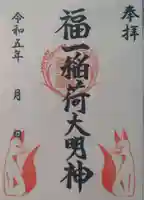 奉拝
福一稲荷大明神
令和五年 月 日